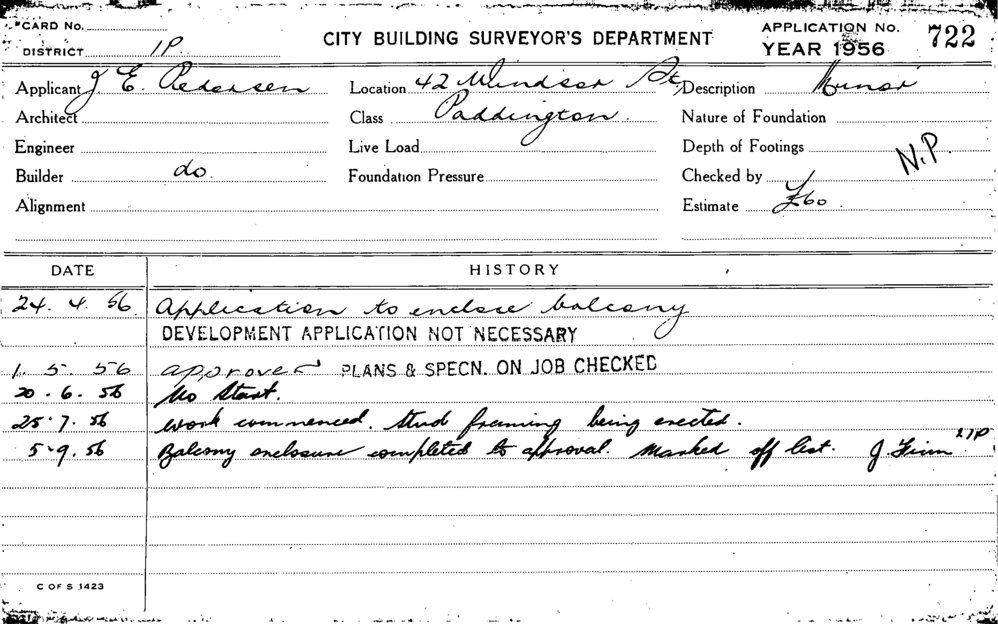 CARD No.
DISTRICT 1P
CITY BUILDING SURVEYOR'S DEPARTMENT
APPLICATION No. 722
YEAR 1956
Applicant J. E. Pedersen Location 42 Windsor St, Description Minor
Architect Class Paddington. Nature of Foundation
Engineer Live Load Depth of Footings N.P.
Builder do. Foundation Pressure Checked by
Alignment Estimate £60.
DATE HISTORY
24. 4. 56. Application to enclose balcony
DEVELOPMENT APPLICATION NOT NECESSARY
1. 5. 56 approved PLANS & SPECN. ON JOB CHECKED
20. 6. 56 No Start.
25. 7. 56 work commenced. Stud framing being erected.
5. 9. 56 Balcony enclosure completed to approval. Marked off list. J.
C OF S 1423